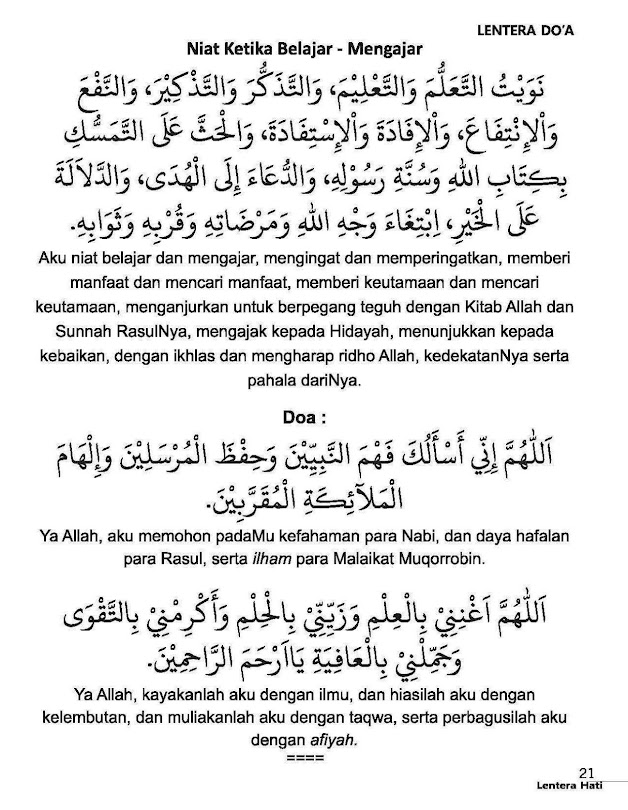 LENTERA DO'A
Niat Ketika Belajar - Mengajar
نَوَيْتُ التَّعَلُّمَ وَالتَّعْلِيْمَ، وَالتَّذَكُّرَ وَالتَّذْكِيْرَ، وَالنَّفْعَ
وَالْإِنْتِفَاعَ، وَالْإِفَادَةَ وَالْإِسْتِفَادَةَ، وَالْحَثَّ عَلَى التَّمَسُّكِ
بِكِتَابِ اللهِ وَسُنَّةِ رَسُوْلِهِ، وَالدُّعَاءَ إِلَى الْهُدَى، وَالدَّلَالَةَ
عَلَى الْخَيْرِ، اِبْتِغَاءَ وَجْهِ اللهِ وَمَرْضَاتِهِ وَقُرْبِهِ وَثَوَابِهِ.
Aku niat belajar dan mengajar, mengingat dan memperingatkan, memberi
manfaat dan mencari manfaat, memberi keutamaan dan mencari
keutamaan, menganjurkan untuk berpegang teguh dengan Kitab Allah dan
Sunnah RasulNya, mengajak kepada Hidayah, menunjukkan kepada
kebaikan, dengan ikhlas dan mengharap ridho Allah, kedekatanNya serta
pahala dariNya.
Doa :
اَللّٰهُمَّ إِنِّي أَسْأَلُكَ فَهْمَ النَّبِيِّيْنَ وَحِفْظَ الْمُرْسَلِيْنَ وَإِلْهَامَ
الْمَلَآئِكَةِ الْمُقَرَّبِيْنَ.
Ya Allah, aku memohon padaMu kefahaman para Nabi, dan daya hafalan
para Rasul, serta ilham para Malaikat Muqorrobin.
اَللّٰهُمَّ اَغْنِنِيْ بِالْعِلْمِ وَزَيِّنِّيْ بِالْحِلْمِ وَأَكْرِمْنِيْ بِالتَّقْوَى
وَجَمِّلْنِيْ بِالْعَافِيَةِ يَااَرْحَمَ الرَّاحِمِيْنَ.
Ya Allah, kayakanlah aku dengan ilmu, dan hiasilah aku dengan
kelembutan, dan muliakanlah aku dengan taqwa, serta perbagusilah aku
dengan afiyah.
====
21
Lentera Hati